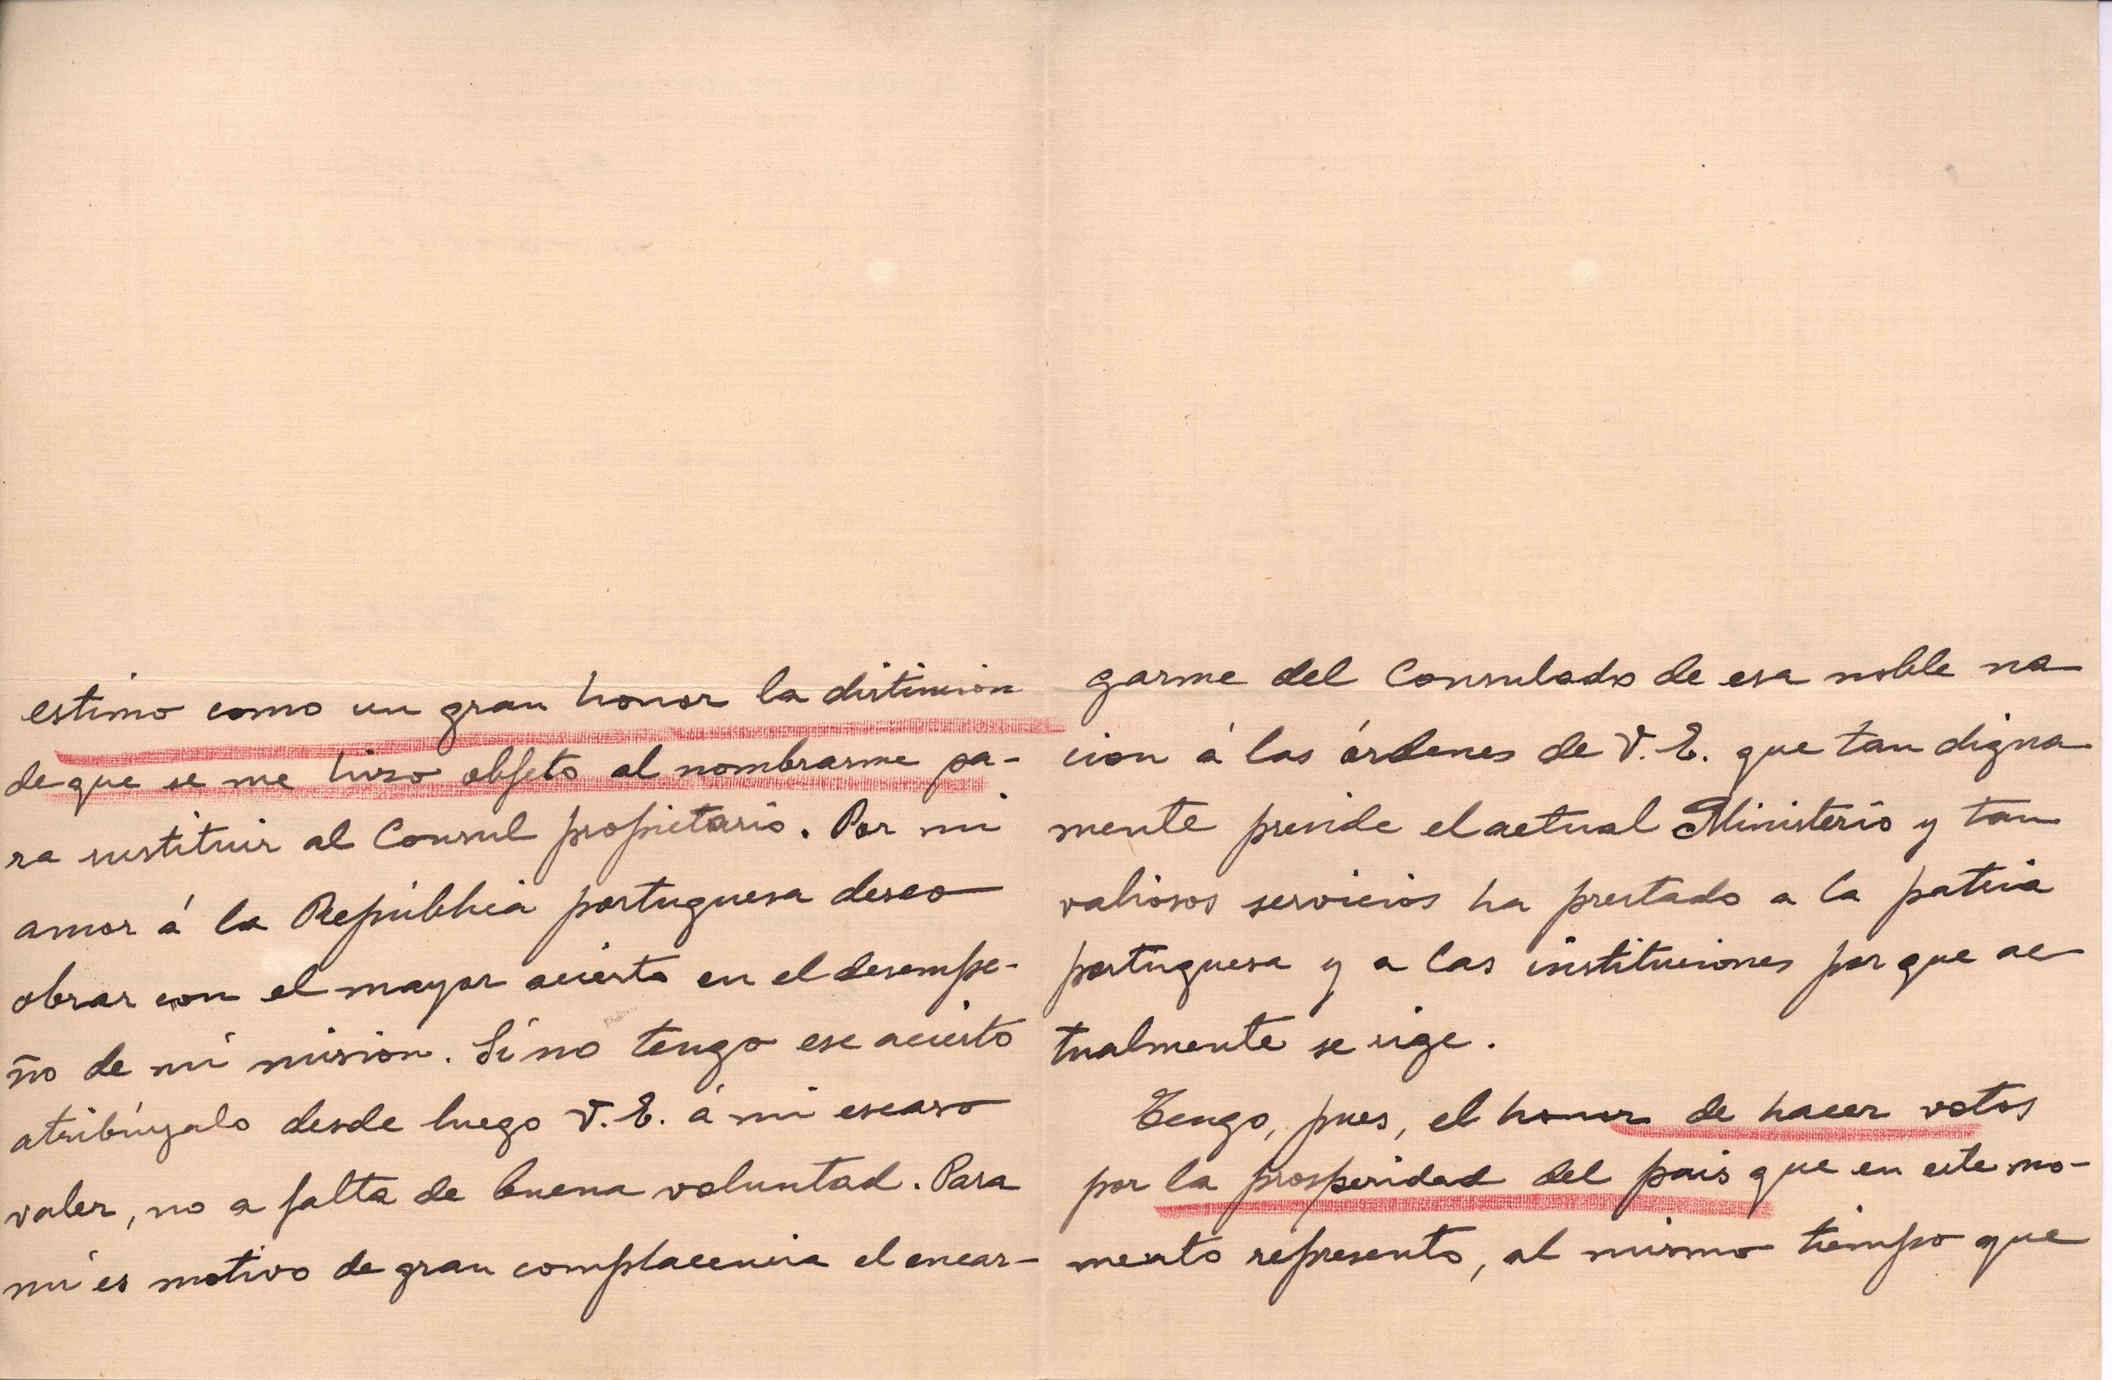 estimo como un gran honor la distincion
de que se me hizo objeto al nombrarme pa-
ra sustituir al Consul propietario. Por mi
amor á la República portuguesa deseo
obrar con el mayor acierto en el desempe-
ño de mi mision. Si no tengo ese acierto
atribúyalo desde luego V. E. á mi escaso
valer, no a falta de buena voluntad. Para
mi es motivo de gran complacencia el encar-
garme del Consulado de esa noble na
cion á las órdenes de V. E. que tan digna
mente preside el actual Ministerio y tan
valiosos servicios ha prestado a la patria
portuguesa y a las instituciones por que ac
tualmente se rige.
Tengo, pues, el honor de hacer votos
por la prosperidad del pais que en este mo-
mento represento, al mismo tiempo que